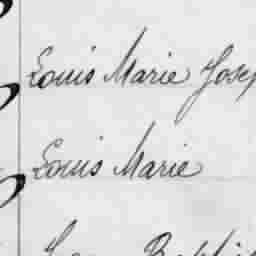 Louis Marie Josep
Louis Marie